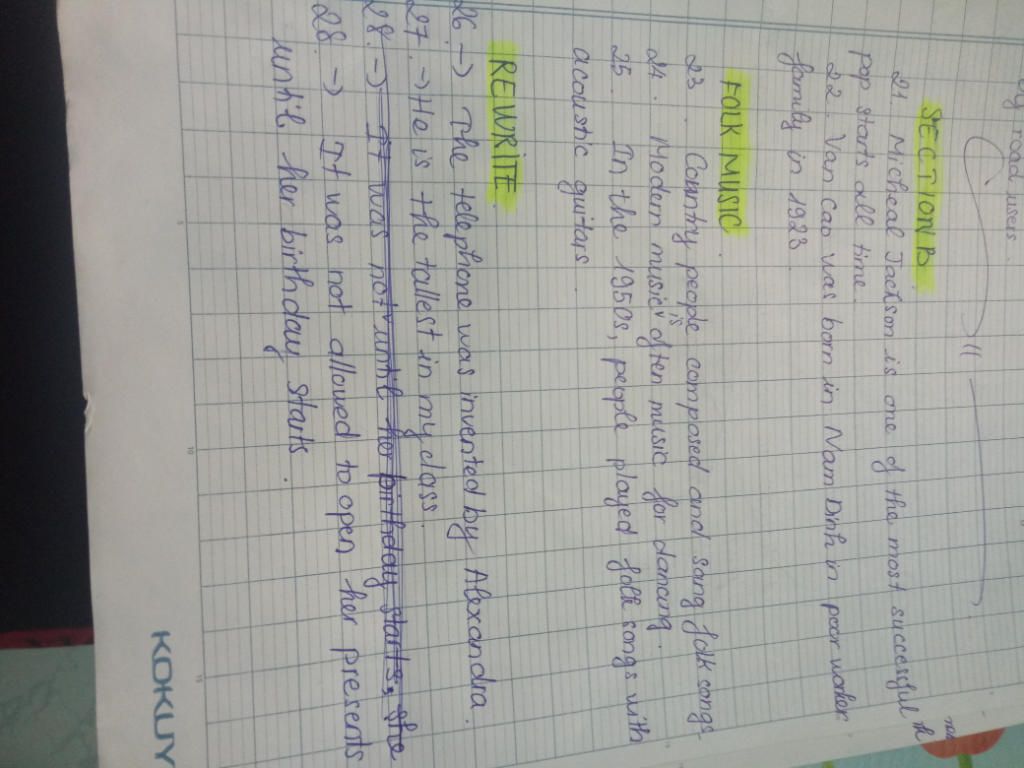 by road users.
SECTION B.
21. Micheal Jackson is one of the most successful
pop starts all time.
22. Van cao was born in Nam Dinh in poor worker
family in 1923.
FOLK MUSIC.
23. Country people composed and sang folk songs
24. Modern music is often music for dancing.
25. In the 1950s, people played folk songs with
accoustic guitars.
REWRITE.
26. → The telephone was invented by Alexandra.
27. → He is the tallest in my class.
28. → It was not until her birthday starts, she
28. → It was not allowed to open her presents
until her birthday starts.
5 10 15
KOKUY